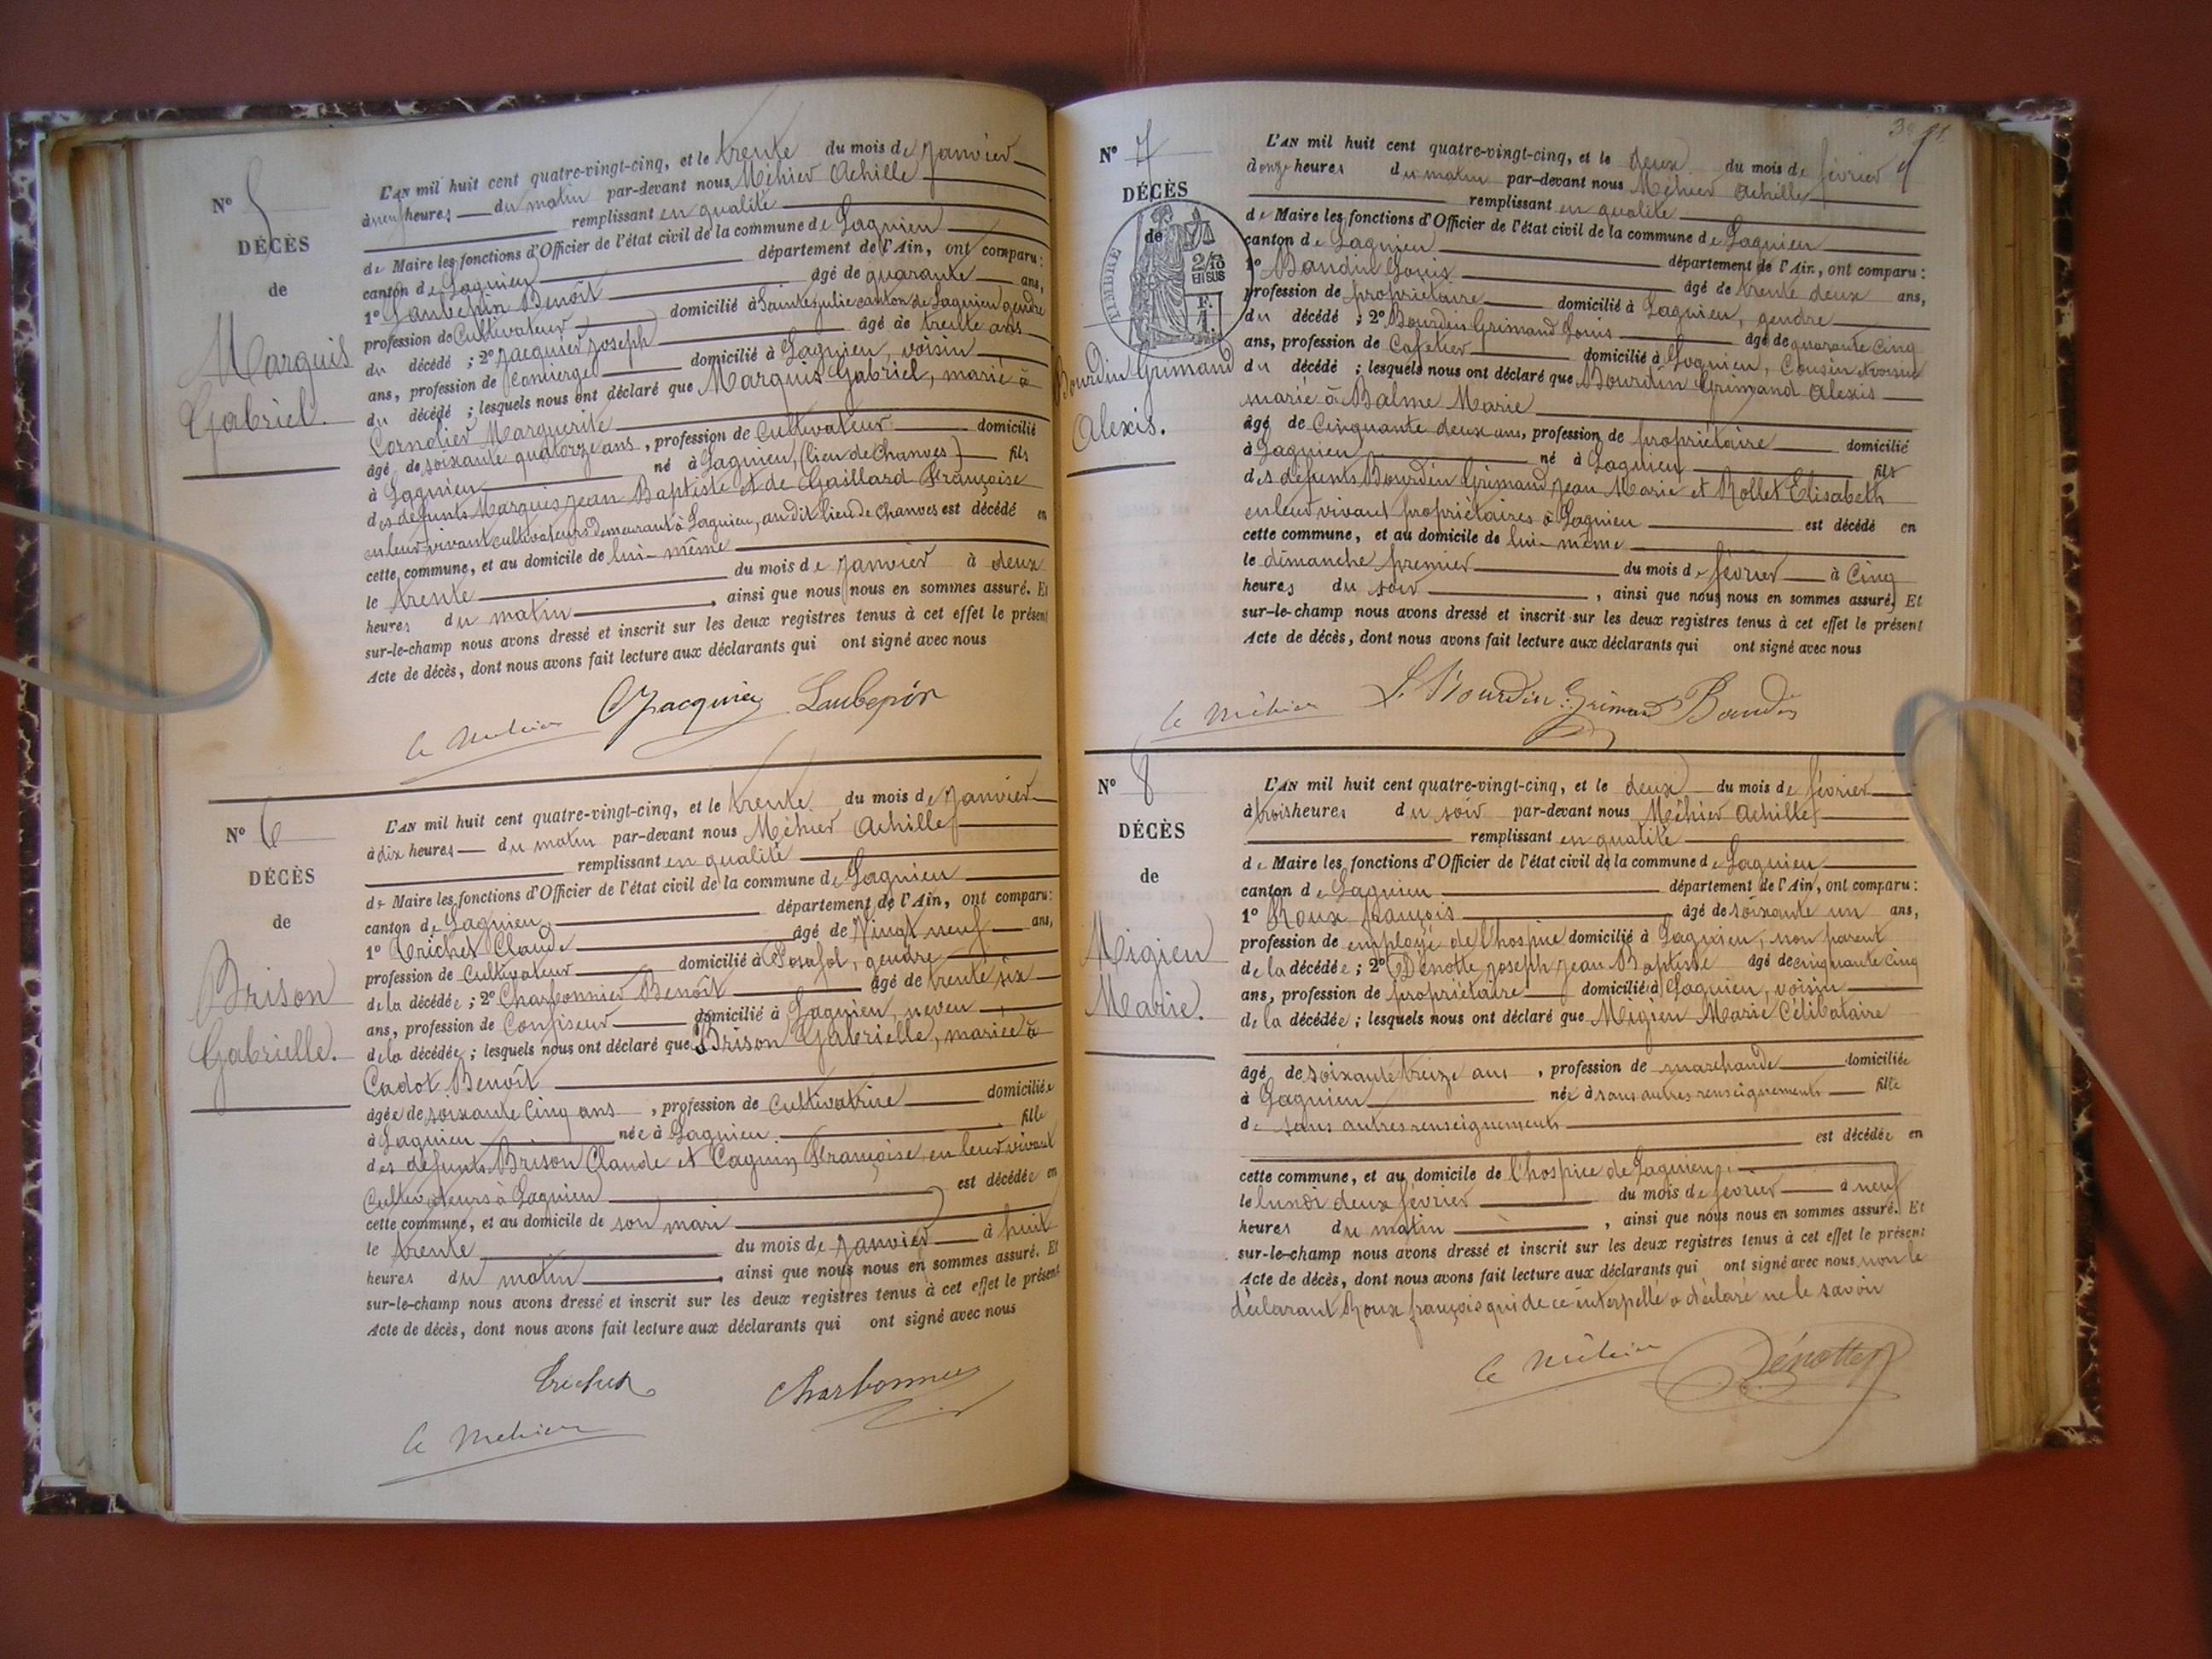 N° 5
DÉCÈS
de
Marquis
Gabriel.
L'AN mil huit cent quatre-vingt-cinq, et le trente du mois de Janvier
à neuf heures du matin par-devant nous Méhier Achille
remplissant en qualité
de Maire les fonctions d'Officier de l'état civil de la commune de Lagnieu
canton de Lagnieu département de l'Ain, ont comparu :
1° Laubepin Benoît âgé de quarante ans,
profession de Cultivateur domicilié à Sainte Julie canton de Lagnieu gendre
du décédé ; 2° Jacquier Joseph âgé de trente ans
ans, profession de Concierge domicilié à Lagnieu, voisin
du décédé ; lesquels nous ont déclaré que Marquis Gabriel, marié à
Cornolier Marguerite
âgé de soixante quatorze ans, profession de Cultivateur domicilié
à Lagnieu né à Lagnieu, (lieu de Chanves) fils
des défunts Marquis Jean Baptiste et de Gaillard Françoise
en leur vivant cultivateurs demeurant à Lagnieu, au dit lieu de Chanves est décédé en
cette commune, et au domicile de lui-même
le trente du mois de Janvier à deux
heures du matin, ainsi que nous nous en sommes assuré. Et
sur-le-champ nous avons dressé et inscrit sur les deux registres tenus à cet effet le présent
Acte de décès, dont nous avons fait lecture aux déclarants qui ont signé avec nous
Jacquier Laubepin
A Méhier
N° 6
DÉCÈS
de
Brison
Gabrielle.
L'AN mil huit cent quatre-vingt-cinq, et le trente du mois de Janvier
à dix heures du matin par-devant nous Méhier Achille
remplissant en qualité
de Maire les fonctions d'Officier de l'état civil de la commune de Lagnieu
canton de Lagnieu département de l'Ain, ont comparu :
1° Trichet Claude âgé de Vingt neuf ans,
profession de Cultivateur domicilié à Posafol, gendre
de la décédée ; 2° Charbonnier Benoît âgé de trente six
ans, profession de Confiseur domicilié à Lagnieu, neveu
de la décédée ; lesquels nous ont déclaré que Brison Gabrielle, mariée à
Cadot Benoît
âgée de soixante cinq ans, profession de Cultivatrice domiciliée
à Lagnieu née à Lagnieu fille
des défunts Brison Claude et Cagnin Françoise, en leur vivant
Cultivateurs à Lagnieu est décédée en
cette commune, et au domicile de son mari
le trente du mois de Janvier à huit
heures du matin, ainsi que nous nous en sommes assuré. Et
sur-le-champ nous avons dressé et inscrit sur les deux registres tenus à cet effet le présent
Acte de décès, dont nous avons fait lecture aux déclarants qui ont signé avec nous
Trichet Charbonnier
A Méhier
N° 7
DÉCÈS
de
TIMBRE
2/10
EN SUS
Bourdin Grimaud
Alexis.
L'AN mil huit cent quatre-vingt-cinq, et le deux du mois de février
à onze heures du matin par-devant nous Méhier Achille
remplissant en qualité
de Maire les fonctions d'Officier de l'état civil de la commune de Lagnieu
canton de Lagnieu département de l'Ain, ont comparu :
1° Baudin Louis âgé de trente deux ans,
profession de propriétaire domicilié à Lagnieu, gendre
du décédé ; 2° Bourdin Grimaud Louis âgé de quarante cinq
ans, profession de Cafetier domicilié à Lagnieu, Cousin et voisin
du décédé ; lesquels nous ont déclaré que Bourdin Grimaud Alexis
marié à Balme Marie
âgé de Cinquante deux ans, profession de propriétaire domicilié
à Lagnieu né à Lagnieu fils
des défunts Bourdin Grimaud Jean Marie et Rollet Elisabeth
en leur vivant propriétaires à Lagnieu est décédé en
cette commune, et au domicile de lui-même
le dimanche premier du mois de février à Cinq
heures du soir, ainsi que nous nous en sommes assuré. Et
sur-le-champ nous avons dressé et inscrit sur les deux registres tenus à cet effet le présent
Acte de décès, dont nous avons fait lecture aux déclarants qui ont signé avec nous
A Méhier L. Bourdin Grimaud Baudin
N° 8
DÉCÈS
de
Migieu
Marie.
L'AN mil huit cent quatre-vingt-cinq, et le deux du mois de février
à trois heures du soir par-devant nous Méhier Achille
remplissant en qualité
de Maire les fonctions d'Officier de l'état civil de la commune de Lagnieu
canton de Lagnieu département de l'Ain, ont comparu :
1° Roux François âgé de soixante un ans,
profession de employé de l'hospice domicilié à Lagnieu, non parent
de la décédée ; 2° Dénotte Joseph Jean Baptiste âgé de cinquante cinq
ans, profession de propriétaire domicilié à Lagnieu, voisin
de la décédée ; lesquels nous ont déclaré que Migieu Marie Célibataire
âgé de soixante treize ans, profession de marchande domiciliée
à Lagnieu née à sans autres renseignements fille
de sans autres renseignements
est décédée en
cette commune, et au domicile de l'hospice de Lagnieu
le lundi deux février du mois de février à neuf
heures du matin, ainsi que nous nous en sommes assuré. Et
sur-le-champ nous avons dressé et inscrit sur les deux registres tenus à cet effet le présent
Acte de décès, dont nous avons fait lecture aux déclarants qui ont signé avec nous non le
déclarant Roux françois qui de ce interpellé a déclaré ne le savoir
A Méhier Dénotte